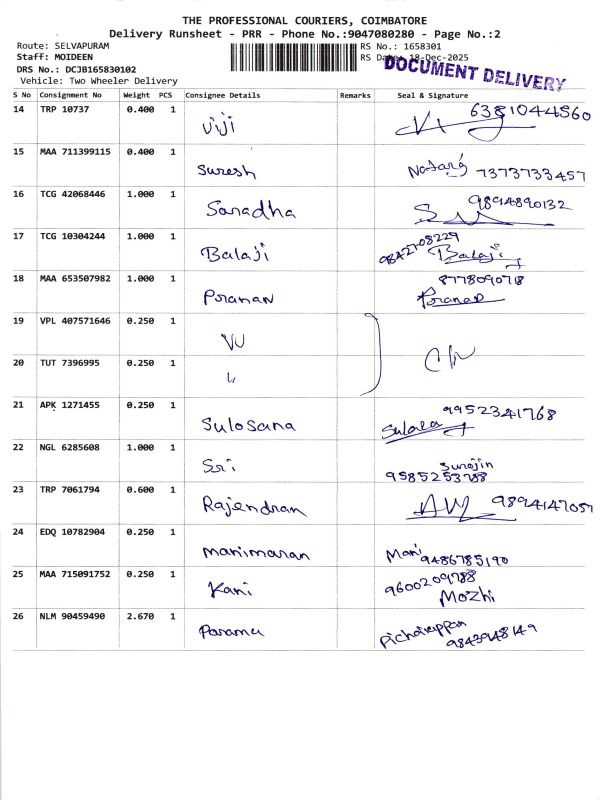 THE PROFESSIONAL COURIERS, COIMBATORE
Delivery Runsheet - PRR - Phone No.:9047080280 - Page No.:2
Route: SELVAPURAM RS No.: 1658301
Staff: MOIDEEN RS Date: 18-Dec-2025
DOCUMENT DELIVERY
DRS No.: DCJB165830102
Vehicle: Two Wheeler Delivery
S No Consignment No Weight PCS Consignee Details Remarks Seal & Signature
14 TRP 10737 0.400 1 Viji 6381044560
15 MAA 711399115 0.400 1 Suresh 7373733457
16 TCG 42068446 1.000 1 Saradha 9894890132
17 TCG 10304244 1.000 1 Balaji 9842708229 Balaji
18 MAA 653507982 1.000 1 Pranav 8778090718 Pranav
19 VPL 407571646 0.250 1
20 TUT 7396995 0.250 1
21 APK 1271455 0.250 1 Sulosana 9952341768
22 NGL 6285608 1.000 1 Sri
23 TRP 7061794 0.600 1 Rajendran 9894147057
24 EDQ 10782904 0.250 1 Manimaran Mani 9486785190
25 MAA 715091752 0.250 1 Kani 9600209788 Mozhi
26 NLM 90459490 2.670 1 Parama 9843948149